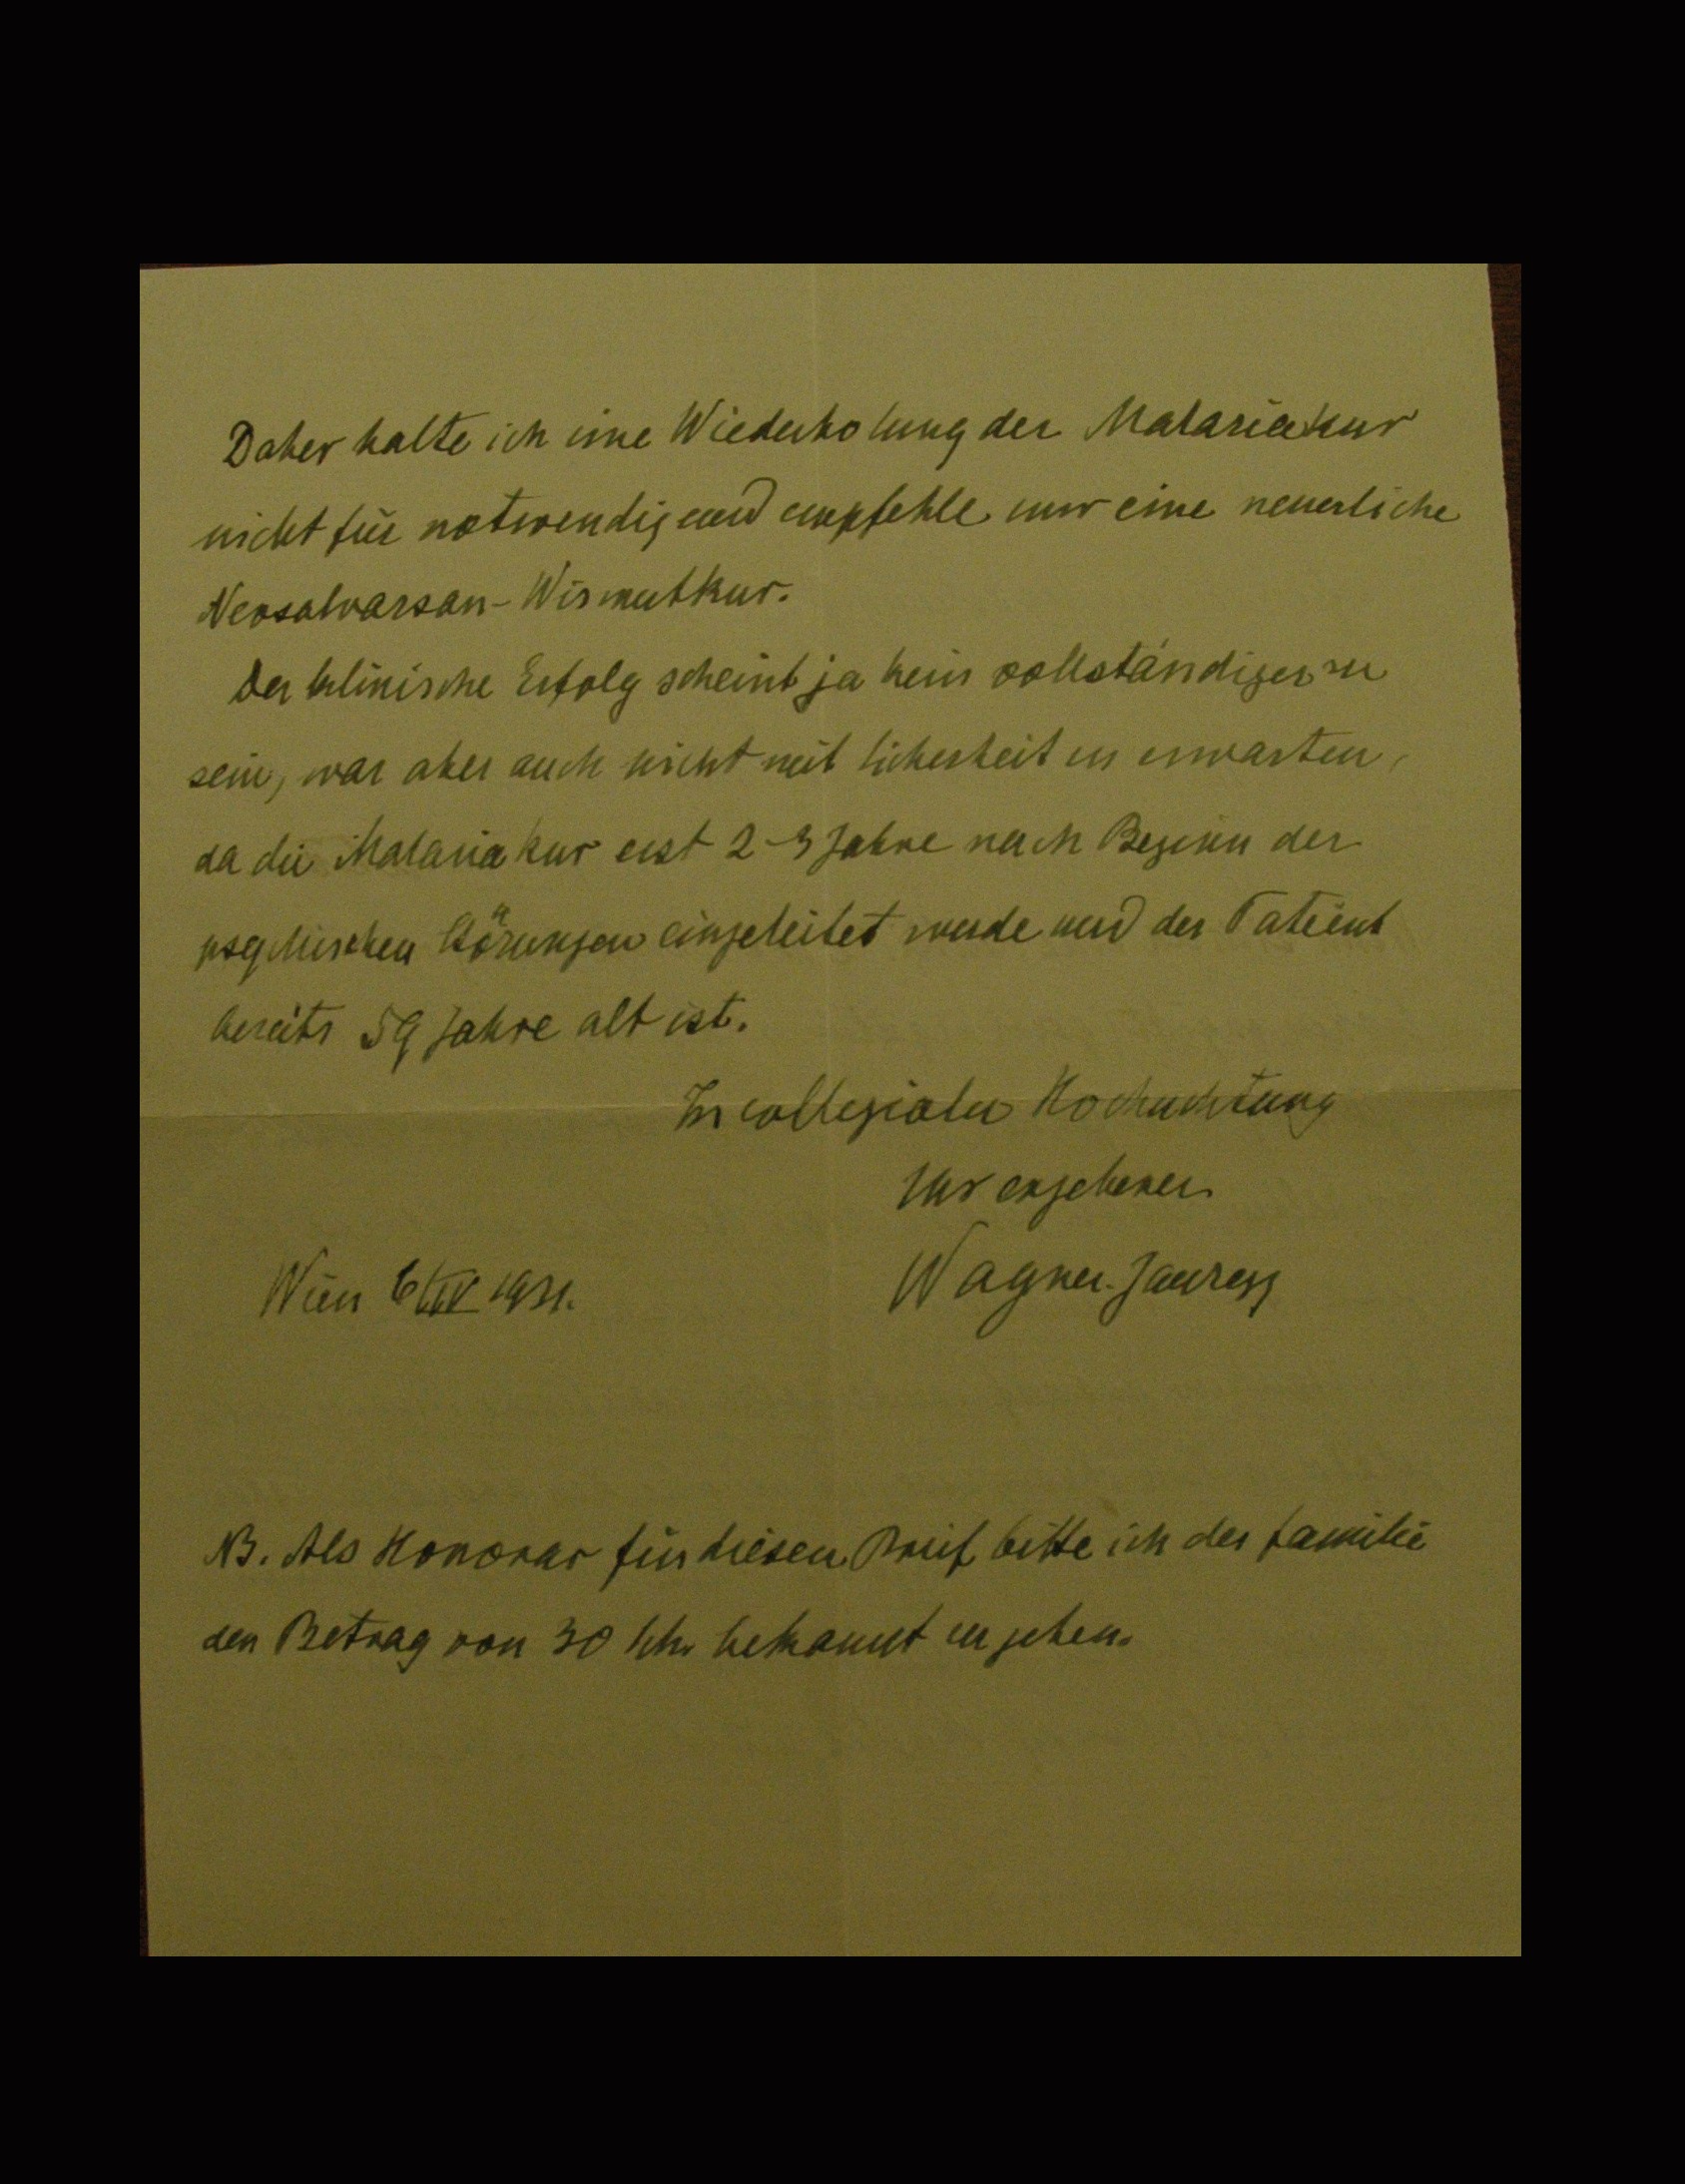 Daher halte ich eine Wiederholung der Malariakur
nicht für notwendig und empfehle nur eine neuerliche
Neosalvarsan-Wismutkur.
Der klinische Erfolg scheint ja kein vollständiger zu
sein, war aber auch nicht mit Sicherheit zu erwarten,
da die Malariakur erst 2-3 Jahre nach Beginn der
psychischen Störungen eingeleitet wurde und der Patient
bereits 59 Jahre alt ist.
In collegialer Hochachtung
Ihr ergebener
Wagner-Jauregg
Wien 6/IV 1931.
NB. Als Honorar für diesen Brief bitte ich der Familie
den Betrag von 30 bekannt zu geben.